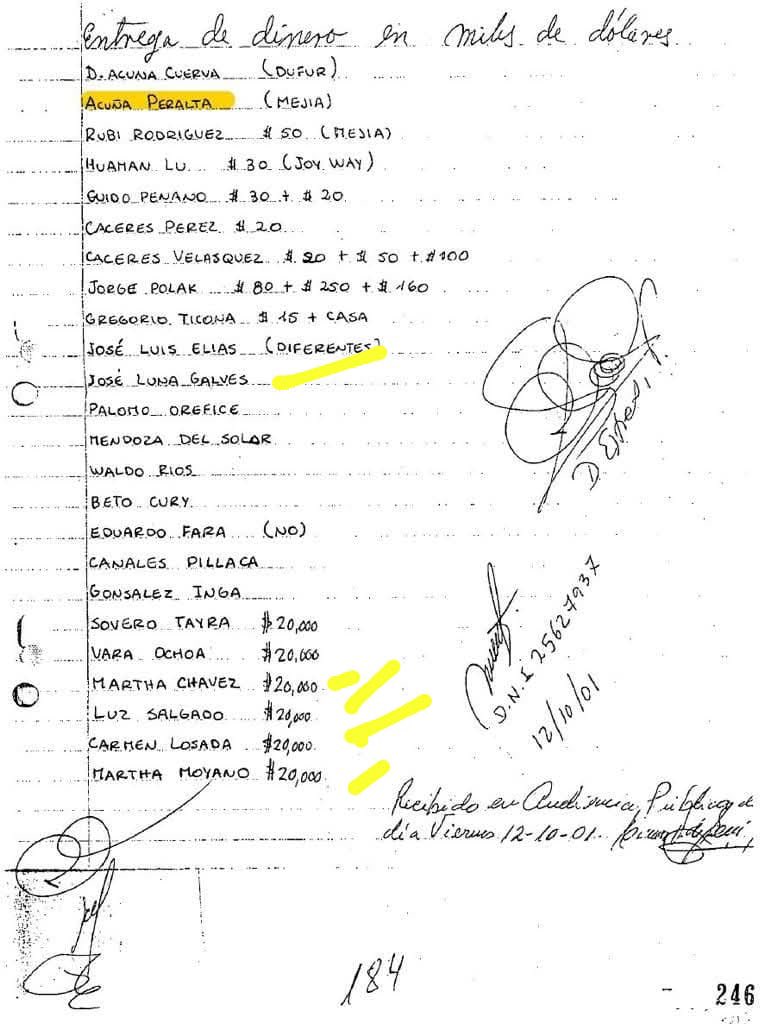 Entrega de dinero en miles de dólares
D. ACUNA CUERVA (DUFUR)
ACUÑA PERALTA (MEJIA)
RUBI RODRIGUEZ $ 50 (MEJIA)
HUAMAN LU $ 30 (JOY WAY)
GUIDO PENANO $ 30 + $ 20
CACERES PEREZ $ 20
CACERES VELASQUEZ $ 20 + $ 50 + $100
JORGE POLAK $ 80 + $ 250 + $ 160
GREGORIO TICONA $ 15 + CASA
JOSÉ LUIS ELIAS (DIFERENTES)
JOSÉ LUNA GALVES
PALOMO OREFICE
MENDOZA DEL SOLAR
WALDO RIOS
BETO CURY
EDUARDO FARA (NO)
CANALES PILLACA
GONSALEZ INGA
SOVERO TAYRA $20,000
VARA OCHOA $20,000
MARTHA CHAVEZ $20,000
LUZ SALGADO $20,000
CARMEN LOSADA $20,000
MARTHA MOYANO $20,000
D.N.I 25627937
12/10/01
Recibido en Audiencia Pública de
día Viernes 12-10-01.
184
246